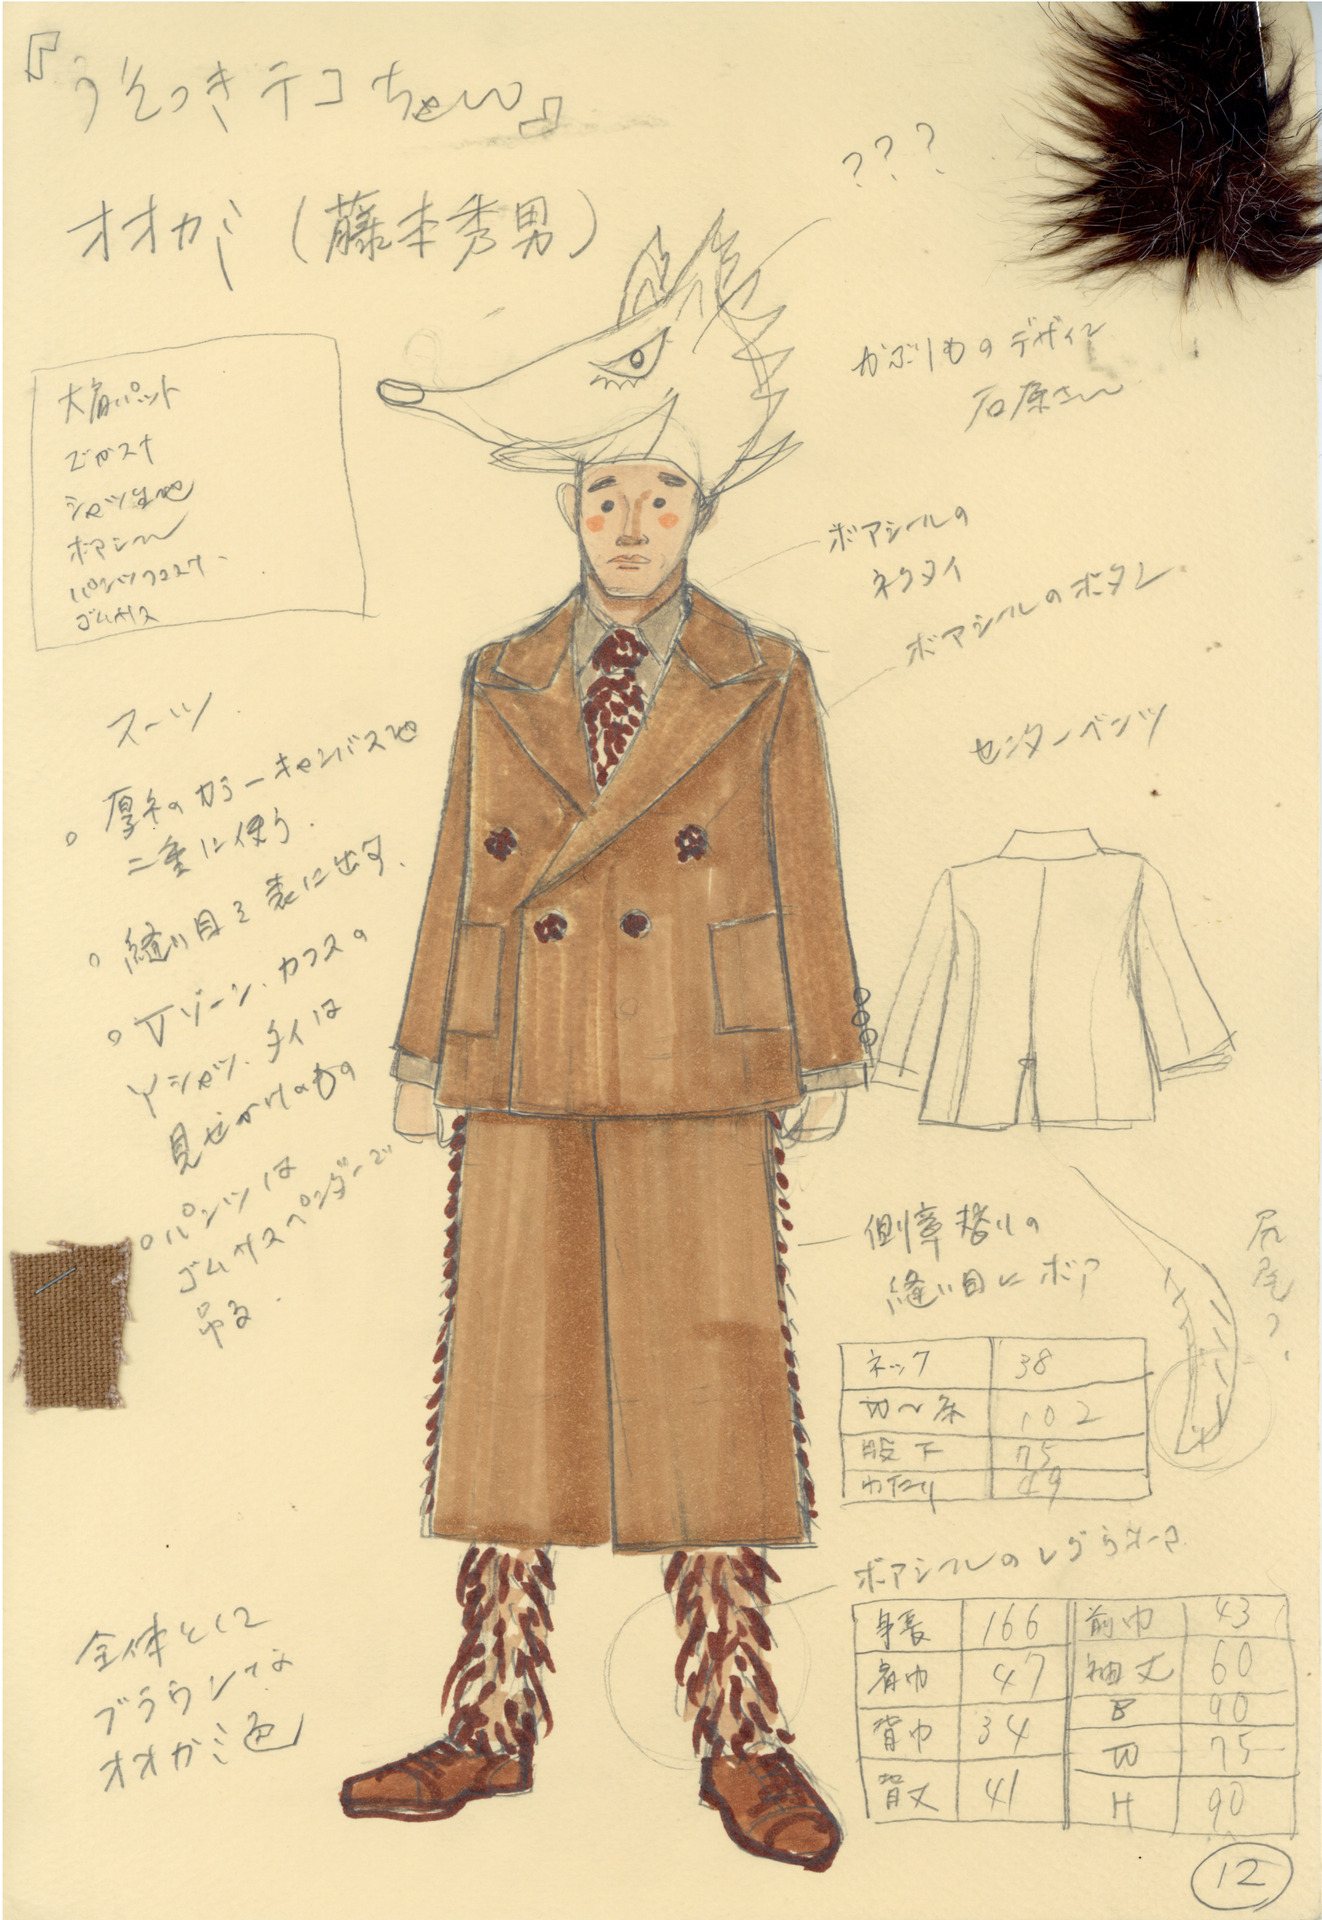 『うそつきテコちゃん』
オオカミ（藤本秀男）
???
かぶりものデザイン
石原さん
大肩パット
シャツ生地
ボアシール
ゴムサス
ボアシールの
ネクタイ
ボアシールのボタン
センターベンツ
スーツ
厚手のカラーキャンバス地
二重に使う.
縫い目を表に出す.
Vゾーン、カフスの
Yシャツ、タイは
見せかけのもの
パンツは
ゴムサスペンダーで
吊る.
側章替りの
縫い目にボア
尻尾?
ネック 38
102
股下 75
わたり 49
ボアシールのレグウォーマ
身長 166 前巾 43
肩巾 47 袖丈 60
背巾 34 B 90
背丈 41 W 75
H 90
全体として
ブラウンな
オオカミ色
12